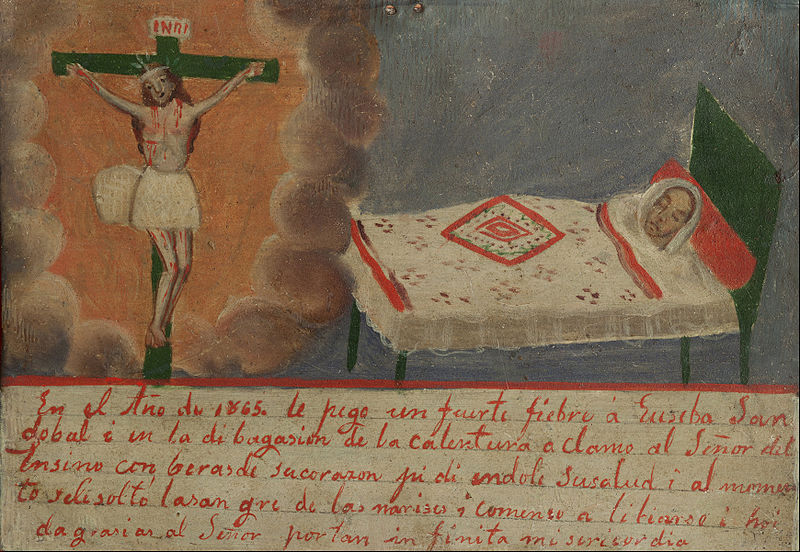 INRI
En el Año de 1865. le pego un fuerte fiebre á Euseba San
dobal i en la di bagasion de la calentura a clamo al Señor del
Ensino con berasde sucorazon pi di endole susalud i al momen
to seli soltó lasan gre de las narises i comenso a libiarse i hoi
da grasias al Señor portan in finita mi sericordia